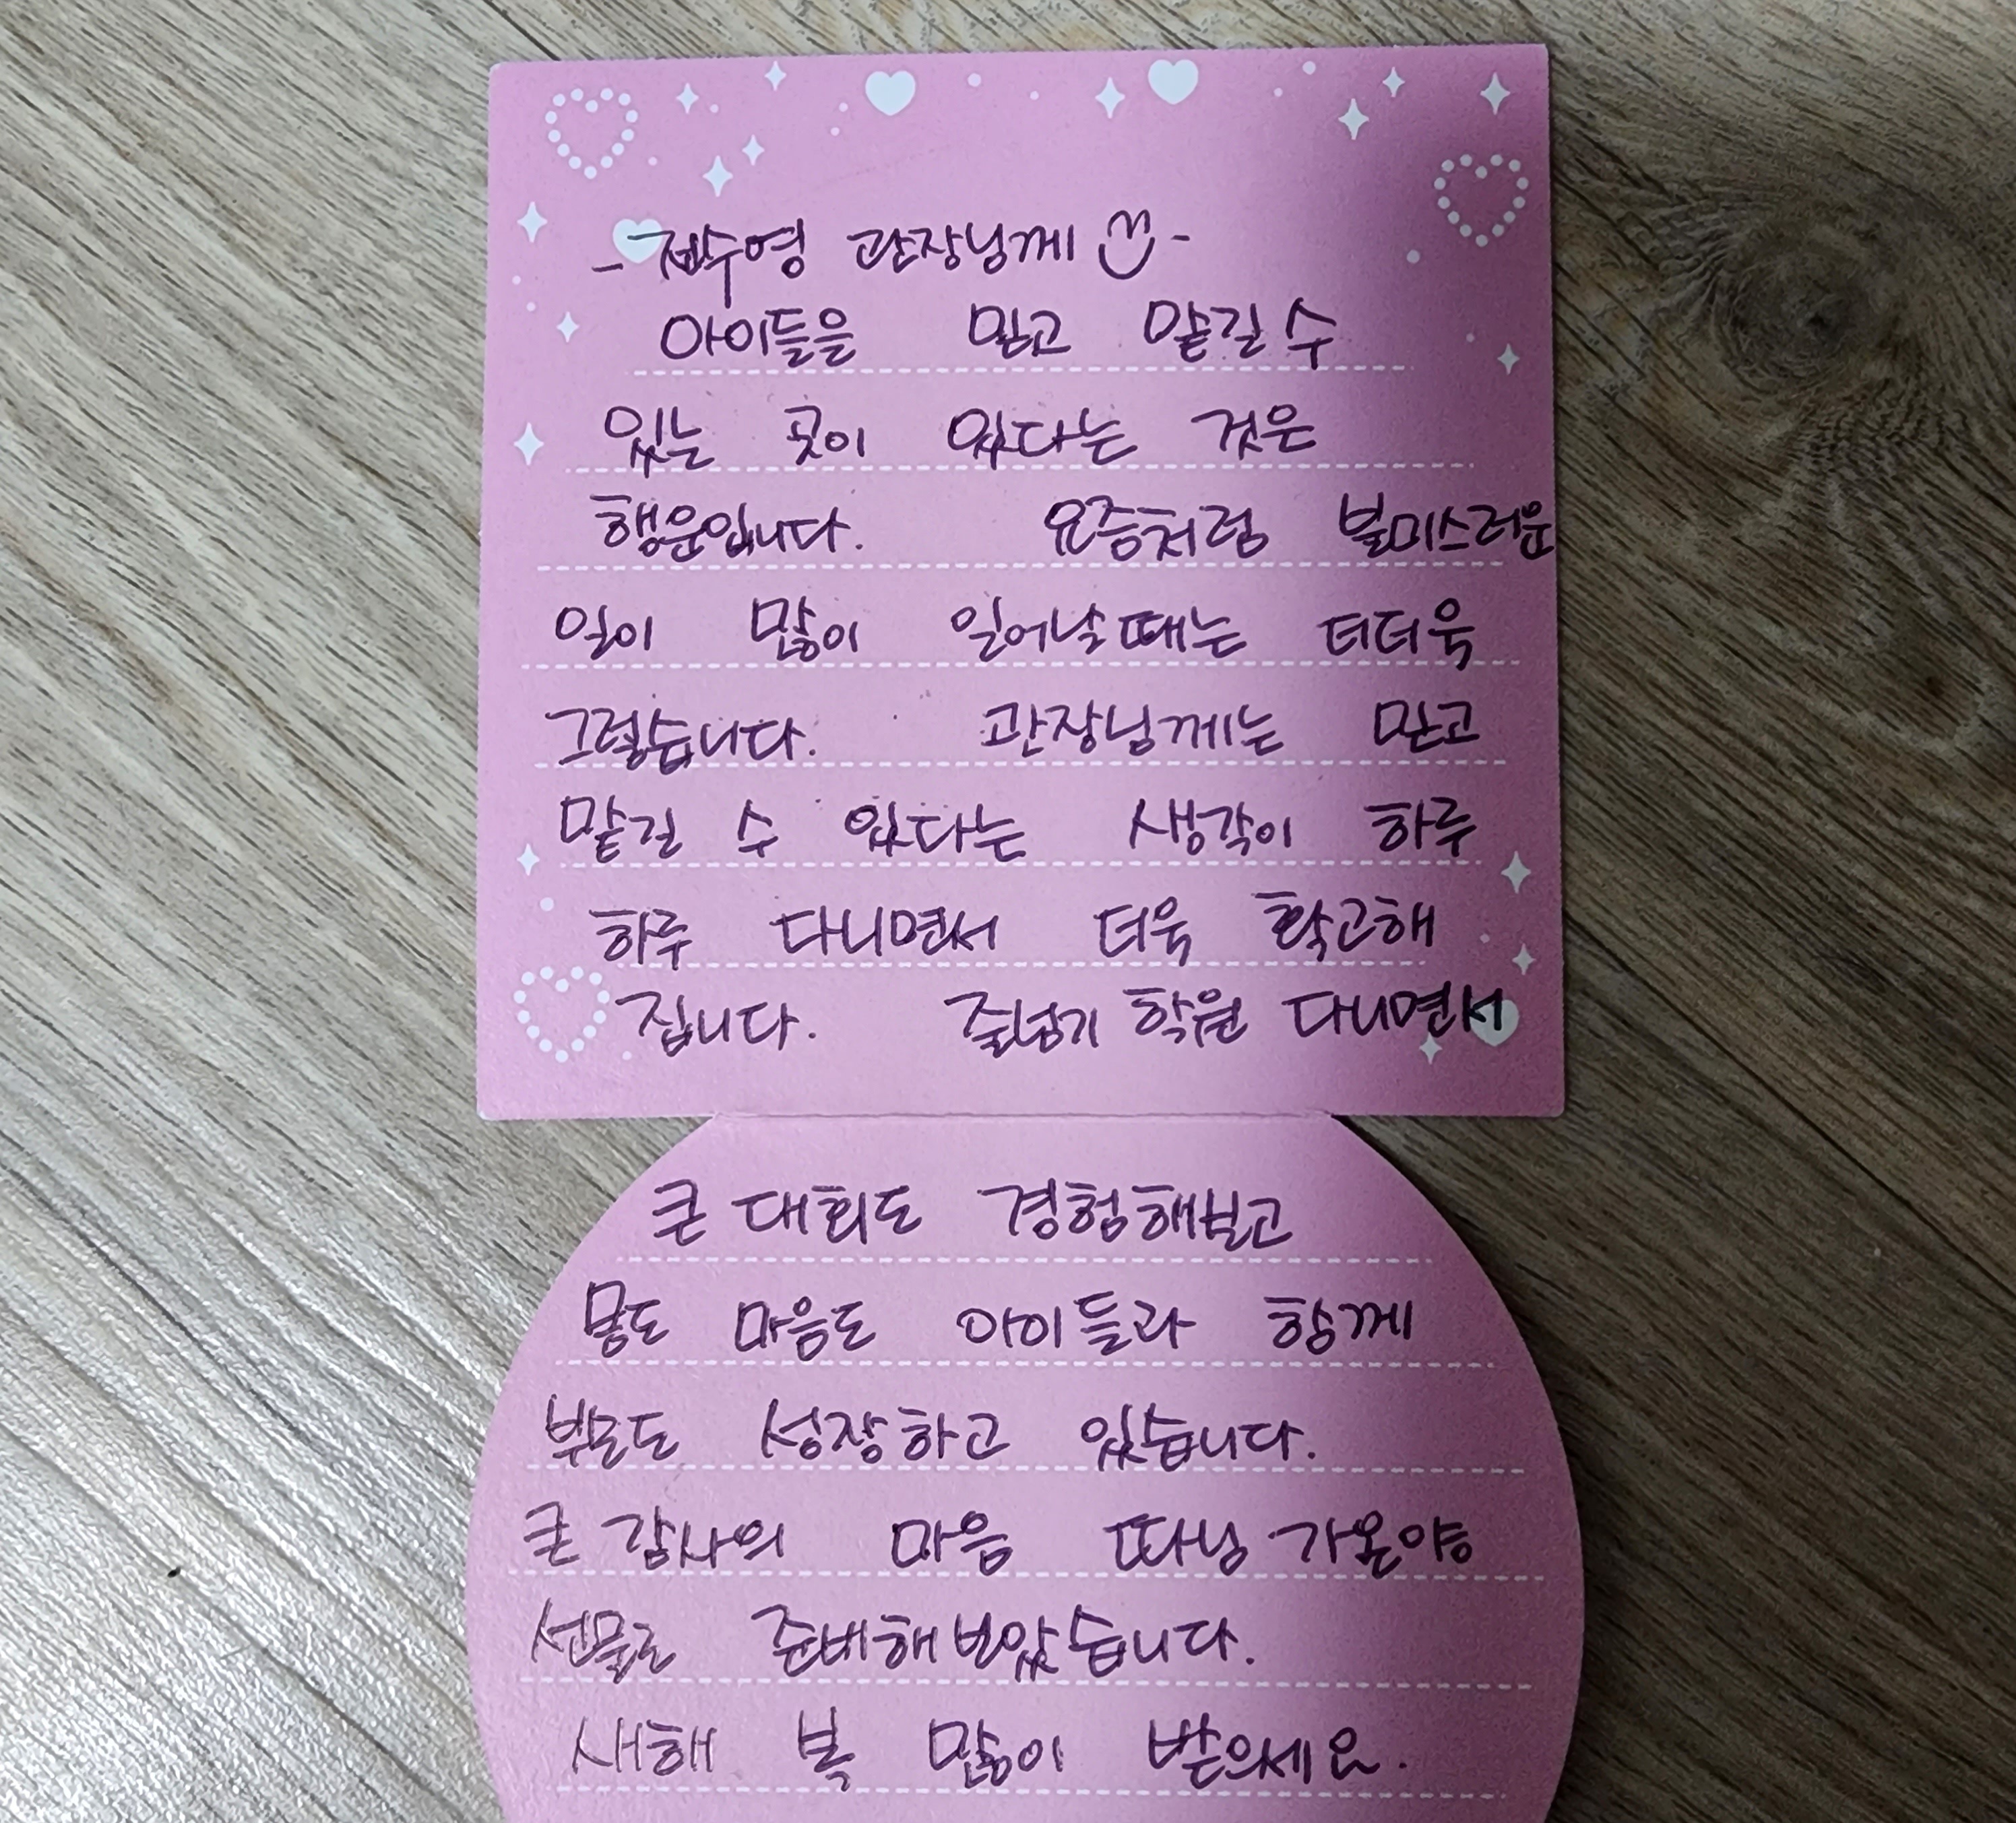 - 전수영 관장님께 -
아이들을 믿고 맡길 수
있는 곳이 있다는 것은
행운입니다. 요즘처럼 불미스러운
일이 많이 일어날때는 더더욱
그렇습니다. 관장님께는 믿고
맡길 수 있다는 생각이 하루
하루 다니면서 더욱 확고해
집니다. 줄넘기 학원 다니면서
큰 대회도 경험해보고
몸도 마음도 아이들과 함께
부모도 성장하고 있습니다.
큰 감사의 마음 따님 가온양
선물로 준비해보았습니다.
새해 복 많이 받으세요.